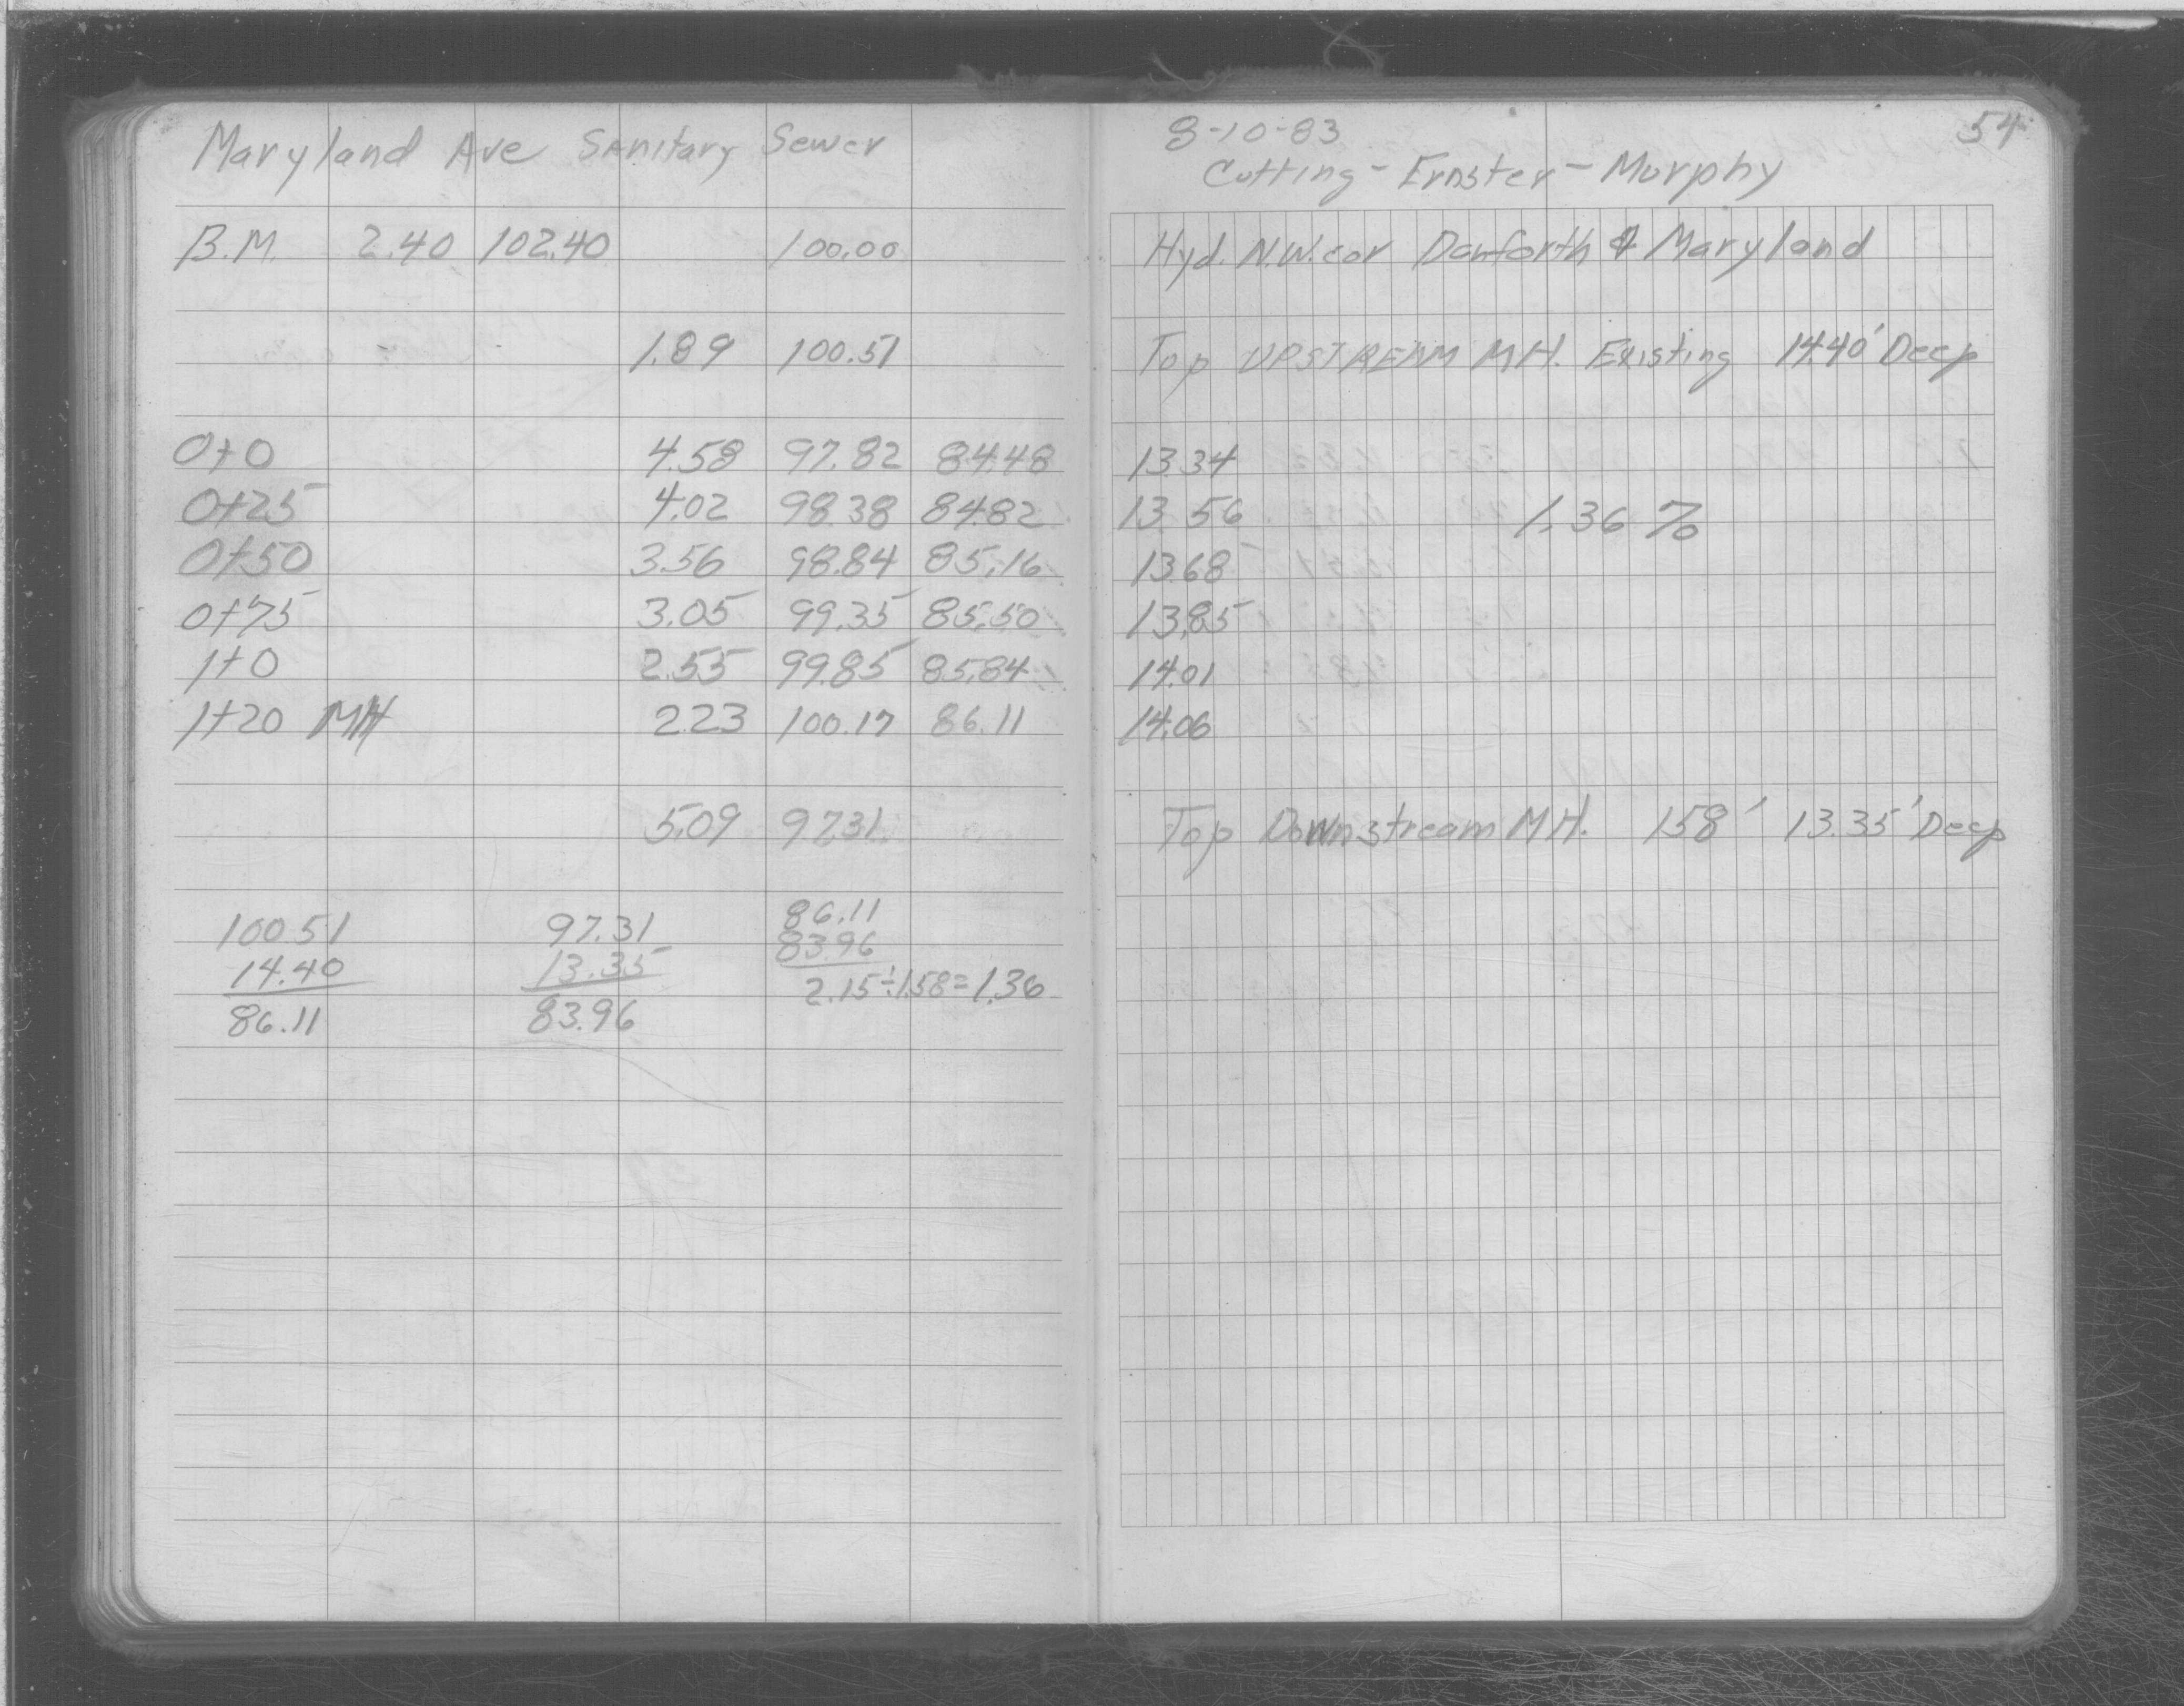 Maryland Ave Sanitary Sewer
B.M. 2.40 102.40 100.00
1.89 100.51
0+0 4.58 97.82 84.48
0+25 4.02 98.38 84.82
0+50 3.56 98.84 85.16
0+75 3.05 99.35 85.50
1+0 2.55 99.85 85.84
1+20 MH 2.23 100.17 86.11
5.09 97.31
100.51 97.31 86.11
14.40 13.35 83.96
86.11 83.96 2.15÷1.58=1.36
8-10-83 54
Cutting - Ernster - Murphy
Hyd. N.W. cor Danforth & Maryland
Top UPSTREAM M.H. Existing 14.40' Deep
13.34
13.56 1.36 %
13.68
13.85
14.01
14.06
Top Downstream M.H. 158' 13.35' Deep